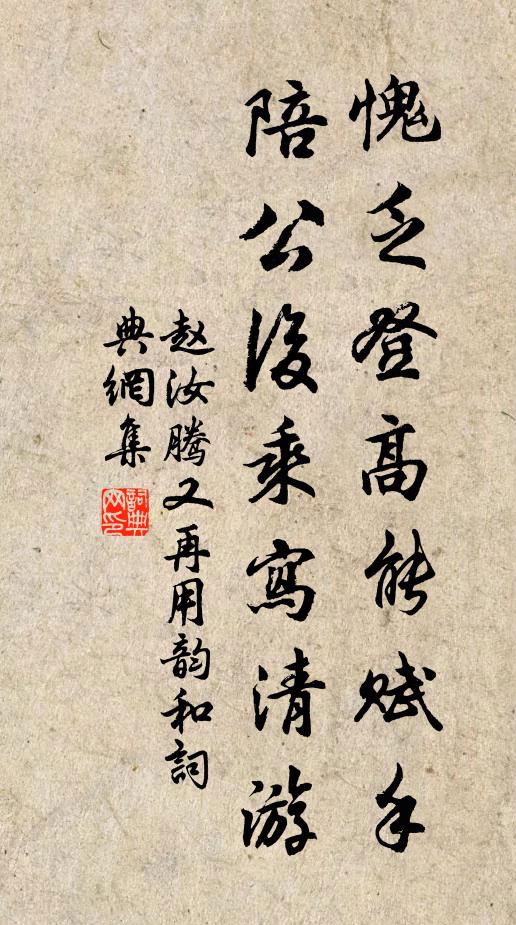 愧乏登高能賦手
陪公後乘寫清游
赵汝腾又再用韵和詞
典網集
詞典網印